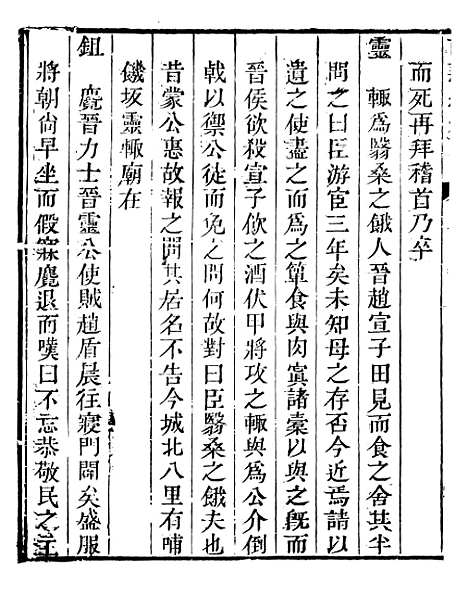 而死再拜稽首乃卒
靈　輙爲翳桑之餓人晉趙宣子田見而食之舍其半
問之曰臣游宦三年矣未知母之存否今近焉請以
遺之使盡之而爲之簞食與肉寘諸橐以與之旣而
晉侯欲殺宣子飮之酒伏甲將攻之輙與爲公介倒
戟以禦公徒而免之問何故對曰臣翳桑之餓夫也
昔蒙公惠故報之問其居名不告今城北八里有哺
饑坂靈輙廟在
鉏　麑晉力士晉靈公使賊趙盾晨往寢門闢矣盛服
將朝尙早坐而假寐麑退而嘆曰不忘恭敬民之主